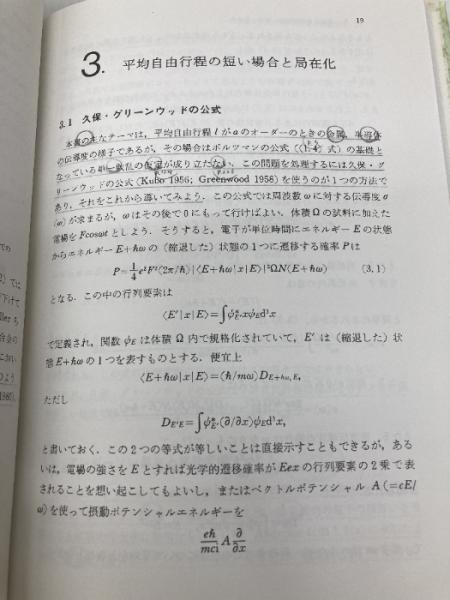 19
3. 平均自由行程の短い場合と局在化
3.1 久保・グリーンウッドの公式
本書の主なテーマは，平均自由行程 l が a のオーダーのときの金属，半導体
の伝導度の様子であるが，その場合はボルツマンの公式 式）の基礎と
なっている単一散乱の仮定が成り立たない．この問題を処理するには久保・グ
リーンウッドの公式 (Kubo 1956; Greenwood 1958) を使うのが1つの方法で
あり，それをこれから導いてみよう．この公式では周波数 ω に対する伝導度 σ
(ω) が求まるが，ω はその後で0にもって行けばよい．体積 Ω の試料に加えた
電場を Fcosωt としよう．そうすると，電子が単位時間にエネルギー E の状態
からエネルギー E+ħω の（縮退した）状態の1つに遷移する確率 P は
P=1/4 e²F²(2π/ħ)|⟨E+ħω|x|E⟩|²ΩN(E+ħω) (3.1)
となる．この中の行列要素は
⟨E′|x|E⟩=∫ψ*E′xψEd³x
で定義され，関数 ψE は体積 Ω 内で規格化されていて，E′ は（縮退した）状
態 E+ħω の1つを表すものとする．便宜上
⟨E+ħω|x|E⟩=(ħ/mω)DE+ħω,E,
ただし
DE′E=∫ψ*E′(∂/∂x)ψEd³x,
と書いておく．この2つの等式が等しいことは直接示すこともできるが，ある
いは，電場の強さを E とすれば光学的遷移確率が Eex の行列要素の2乗で表
されることを想い起こしてもよいし，またはベクトルポテンシャル A(=cE/
ω) を使って摂動ポテンシャルエネルギーを
eħ/mci A ∂/∂x